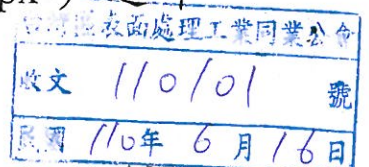 px
表面處理工業同業公會
收文 110101 號
民國 110年 6月 16日